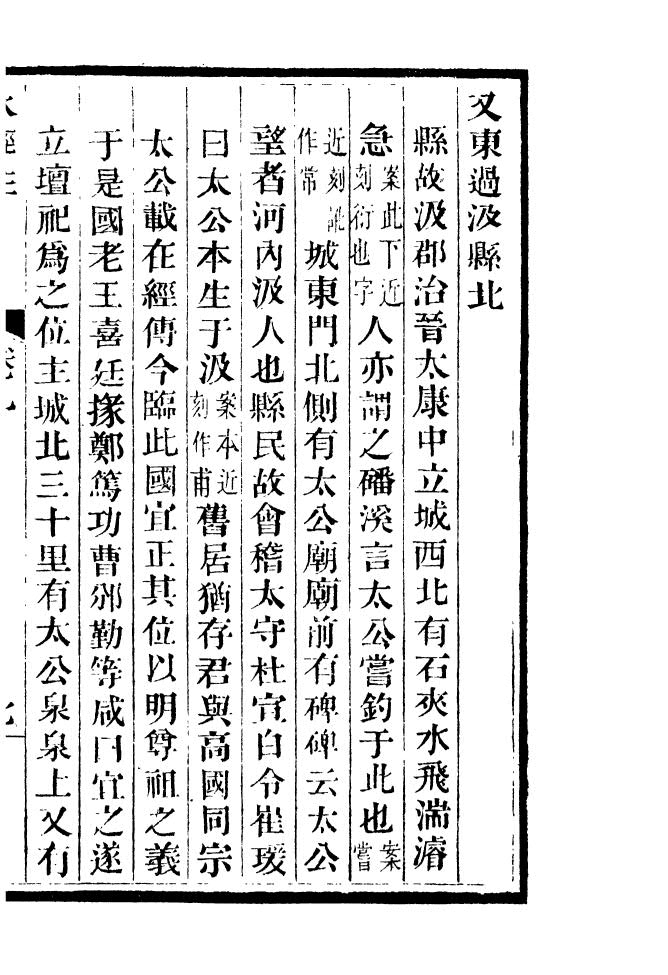 又東過汲縣北
縣故汲郡治晉太康中立城西北有石夾水飛湍濬
急案此下近刻衍也字人亦謂之磻溪言太公嘗釣于此也案嘗
近刻訛作常城東門北側有太公廟廟前有碑碑云太公
望者河內汲人也縣民故會稽太守杜宣白令崔瑗
曰太公本生于汲案本近刻作甫舊居猶存君與高國同宗
太公載在經傳今臨此國宜正其位以明尊祖之義
于是國老王喜廷掾鄭篤功曹邠勤等咸曰宜之遂
立壇祀爲之位主城北三十里有太公泉泉上又有